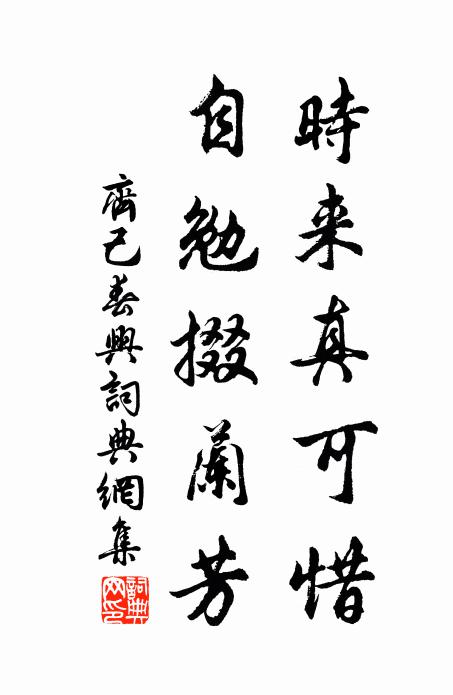 時来真可惜
自勉掇蘭芳
齊己春興詞典網集
詞典网印